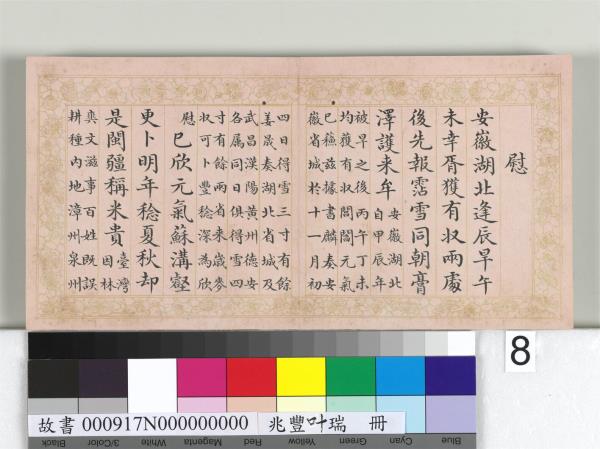 慰
安徽湖北逢辰旱午
未幸胥獲有収兩處
後先報霑雪同朝膏
澤護来牟
安徽湖北
自甲辰年
被旱之後丙午丁未
均獲有収閭閻元氣
已蘓茲據書麟奏安
徽省城於十一月初
四日得雪三寸有餘
姜晟奏湖北省城及
武昌漢陽黄州德安
各属同日俱得雪四
寸有餘兩省来歳麥
収可卜豐稔深為欣
慰
已欣元氣蘇溝壑
更卜明年稔夏秋却
是閩疆稱米貴
臺灣
因林
爽文滋事百姓既誤
耕種内地漳州泉州
8
故書 000917N000000000 兆豐叶瑞 冊
Black
3/Color
White
Magenta
Red
Yellow
Green
Cyan
Blue